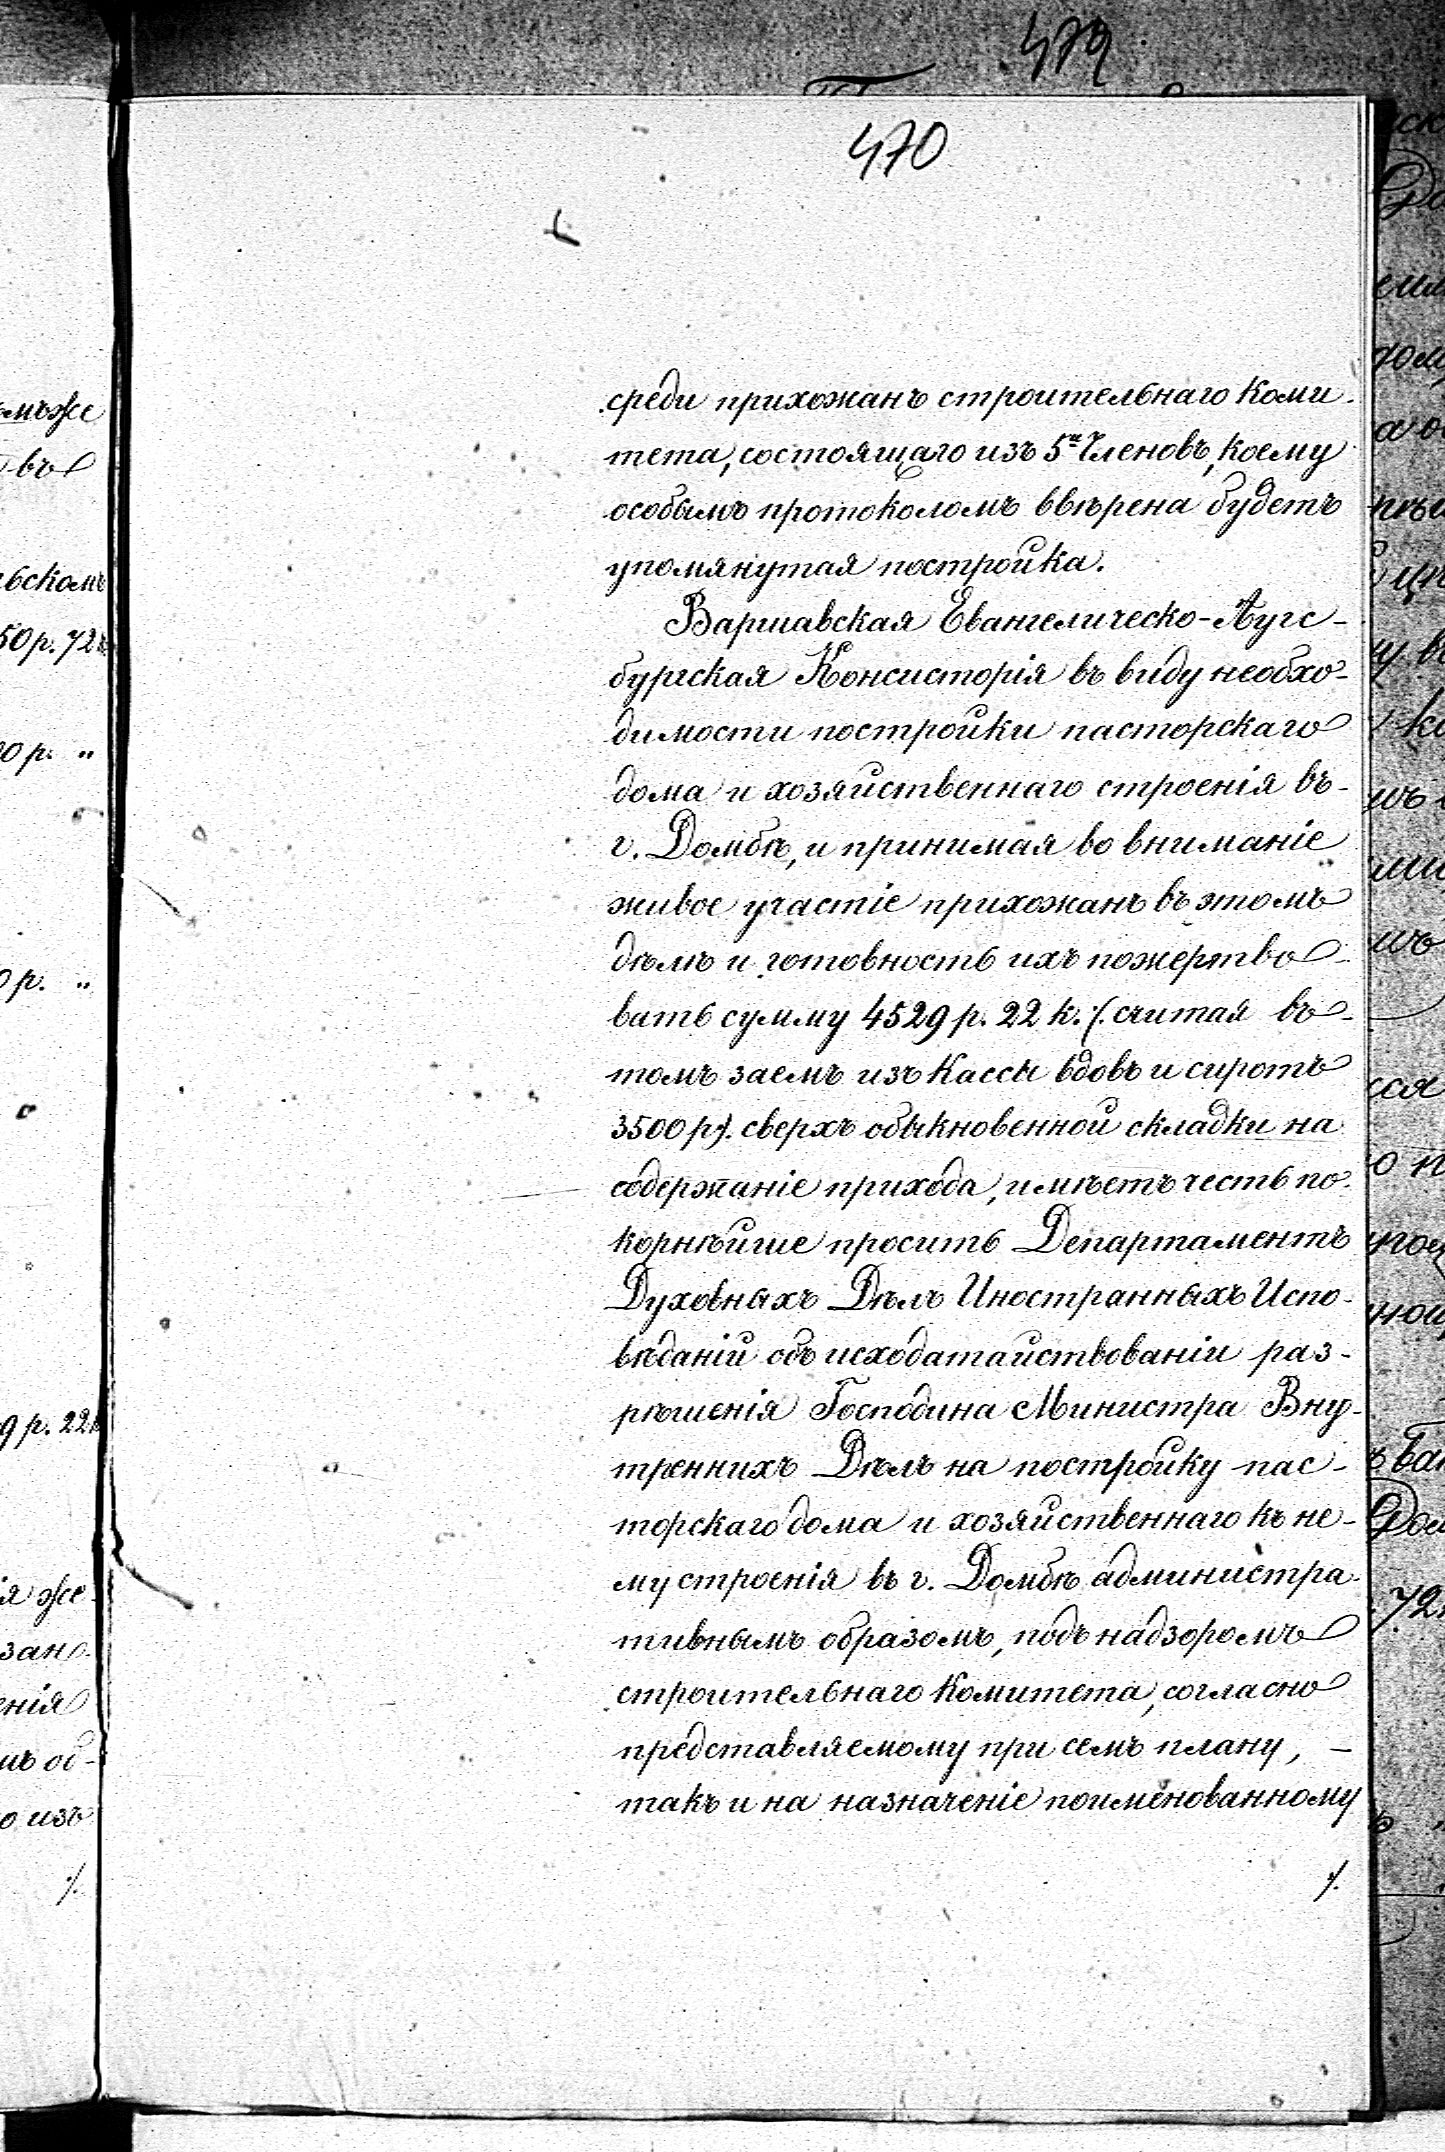 479
470
среди прихожанъ строительнаго Коми-
тета, состоящаго изъ 5ти Членовъ, коему
особымъ протоколомъ ввѣрена будетъ
упомянутая постройка.
Варшавская Евангелическо-Аугс-
бургская Консисторія въ виду необхо-
димости постройки пасторскаго
дома и хозяйственнаго строенія въ
г. Домбѣ, и принимая во вниманіе
живое участіе прихожанъ въ этомъ
дѣлѣ и готовность ихъ пожертво-
вать сумму 4529 р. 22 к. /. считая въ
томъ заемъ изъ Кассы вдовъ и сиротъ
3500 р./. сверхъ обыкновенной складки на
содержаніе прихода, имѣетъ честь по-
корнѣйше просить Департаментъ
Духовныхъ Дѣлъ Иностранныхъ Испо-
вѣданій объ исходатайствованіи раз-
рѣшенія Господина Министра Вну-
треннихъ Дѣлъ на постройку пас-
торскаго дома и хозяйственнаго къ не-
му строенія въ г. Домбѣ администра-
тивнымъ образомъ, подъ надзоромъ
строительнаго Комитета, согласно
представляемому при семъ плану, –
такъ и на назначеніе поименованному
./.